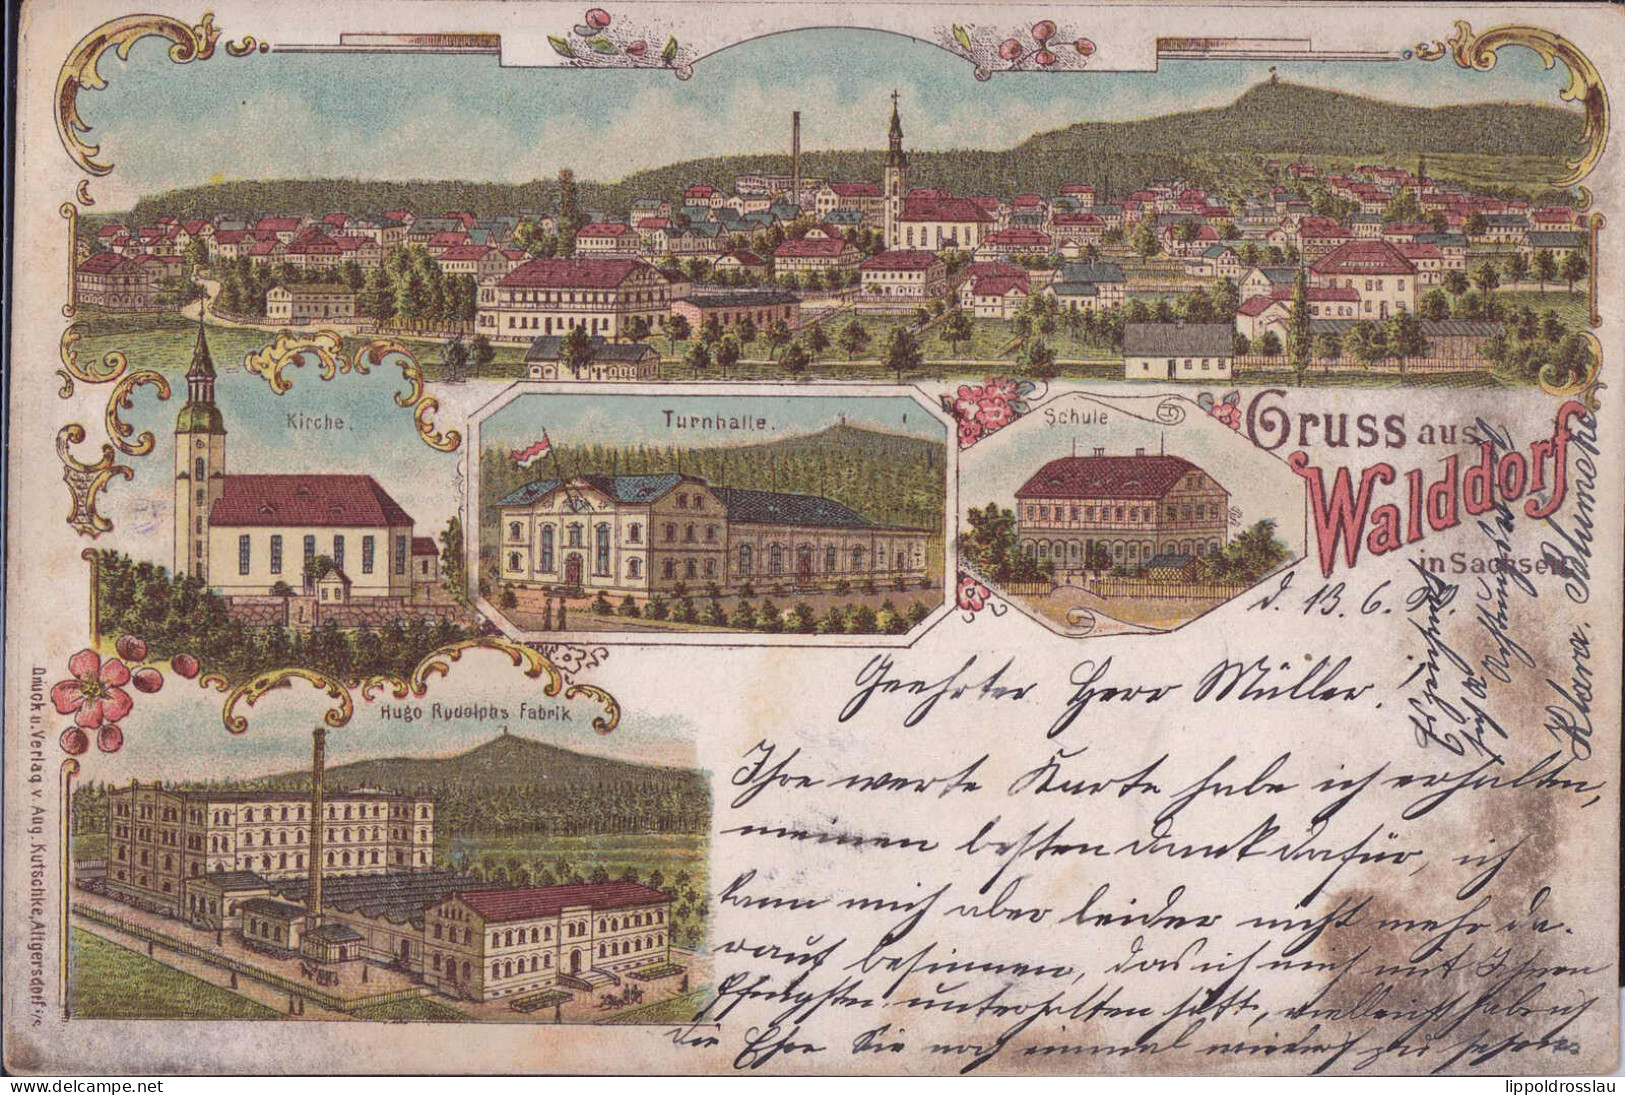 Kirche.
Turnhalle.
Schule
Gruss aus
Walddorf
in Sachsen
d. 13. 6.
Hugo Rudolphs Fabrik
Druck u. Verlag v Aug. Kutschke, Altgersdorf i/S.
Geehrter Herr Müller!
Ihre werte Karte habe ich erhalten,
meinen besten dank dafür, ich
kann mich aber leider nicht mehr da-
rauf besinnen, das ich mich mit Ihnen
Pfingsten unterhalten hätt, vielleicht hab ich
die Ehre Sie noch einmal wieder zu sehen
Klara
lippoldrosslau